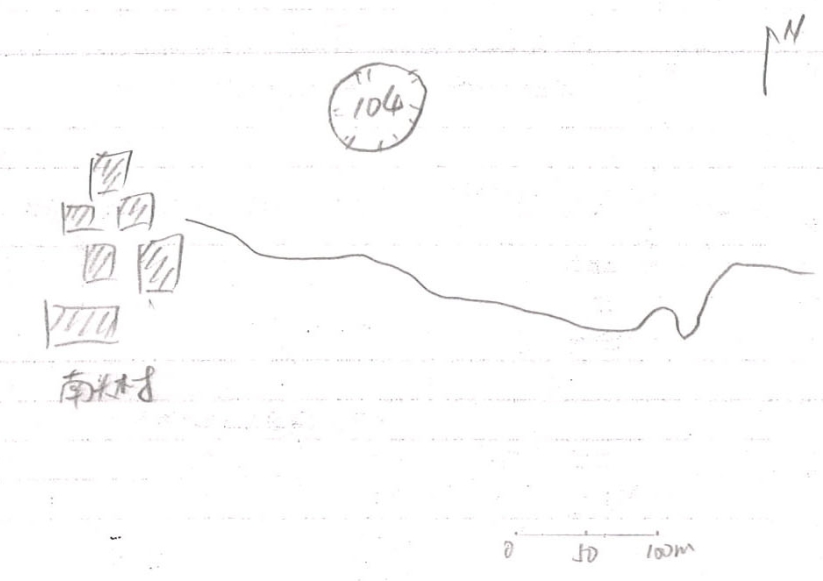 N
104
南头村
0 50 100m